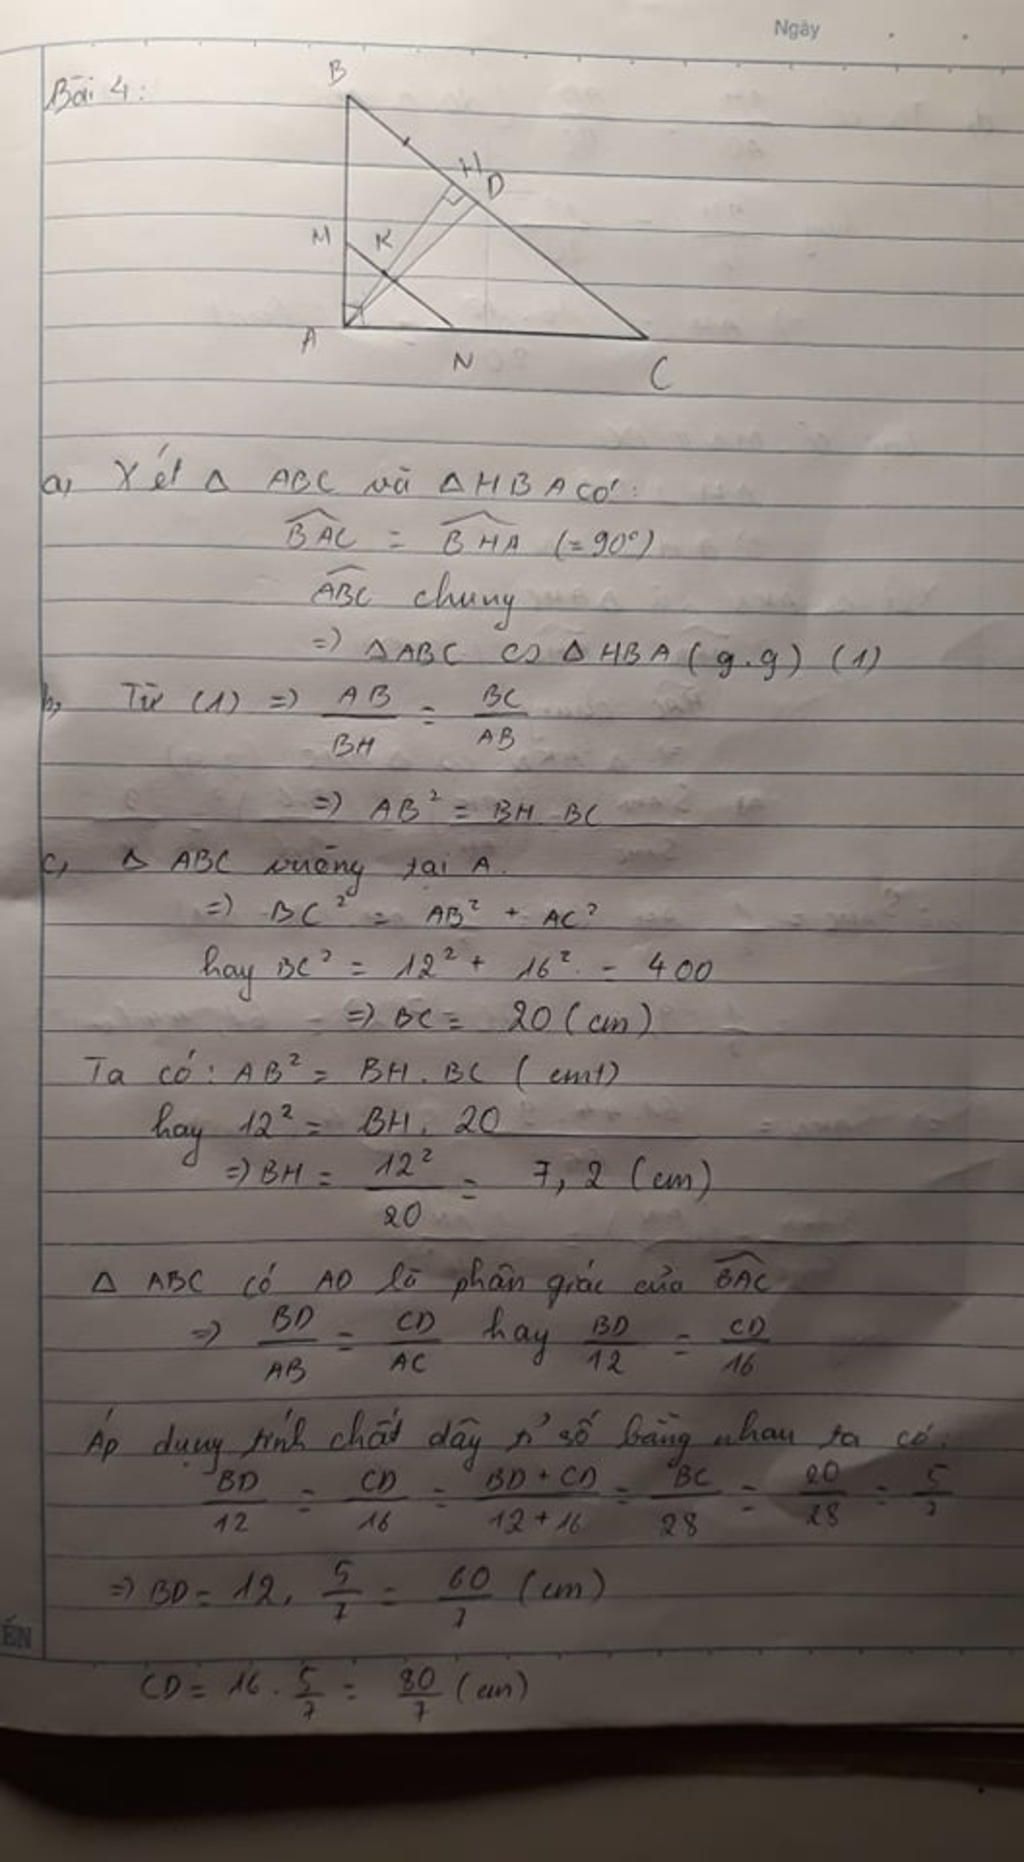 Ngày
Bài 4:
B
H
D
M
K
A
N
C
a, Xét Δ ABC và Δ HBA có:
BAC = BHA (= 90°)
ABC chung
=> Δ ABC ∽ Δ HBA (g.g) (1)
b, Từ (1) => AB/BH = BC/AB
=> AB² = BH. BC
c, Δ ABC vuông tại A.
=> BC² = AB² + AC²
hay BC² = 12² + 16² = 400
=> BC = 20 (cm)
Ta có: AB² = BH. BC (cmt)
hay 12² = BH. 20
=> BH = 12²/20 = 7,2 (cm)
Δ ABC có AD là phân giác của BAC
=> BD/AB = CD/AC hay BD/12 = CD/16
Áp dụng tính chất dãy tỉ số bằng nhau ta có:
BD/12 = CD/16 = BD + CD/12 + 16 = BC/28 = 20/28 = 5/7
=> BD = 12. 5/7 = 60/7 (cm)
ẾN
CD = 16. 5/7 = 80/7 (cm)